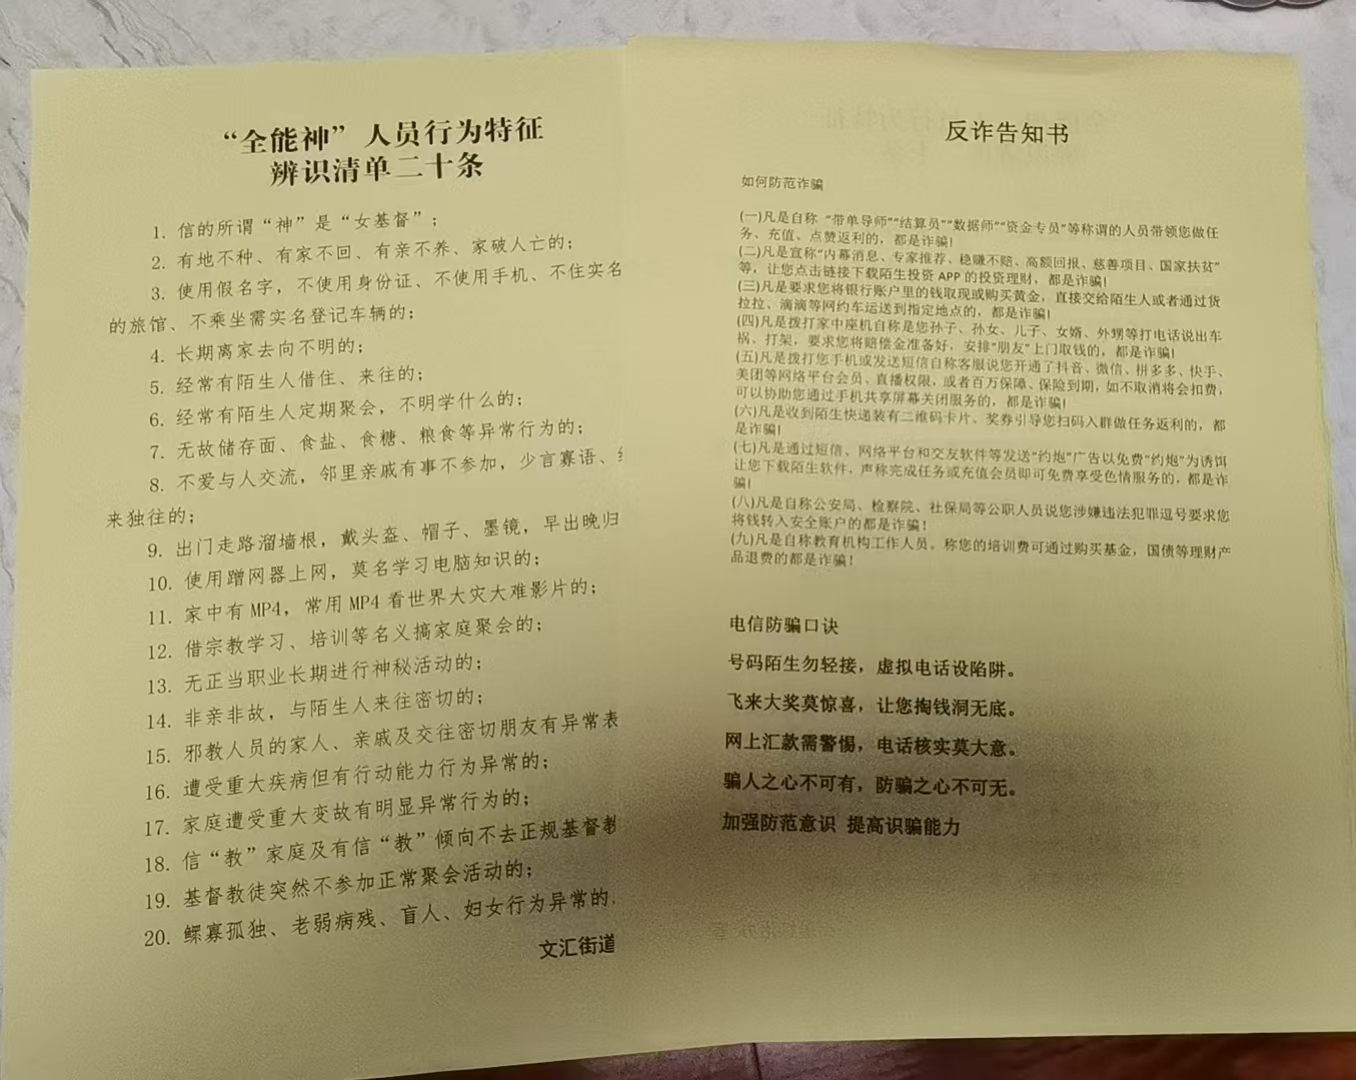 “全能神”人员行为特征
辨识清单二十条
1. 信的所谓“神”是“女基督”；
2. 有地不种、有家不回、有亲不养、家破人亡的；
3. 使用假名字，不使用身份证、不使用手机、不住实名
的旅馆、不乘坐需实名登记车辆的；
4. 长期离家去向不明的；
5. 经常有陌生人借住、来往的；
6. 经常有陌生人定期聚会，不明学什么的；
7. 无故储存面、食盐、食糖、粮食等异常行为的；
8. 不爱与人交流，邻里亲戚有事不参加，少言寡语、
来独往的；
9. 出门走路溜墙根，戴头盔、帽子、墨镜，早出晚归
10. 使用蹭网器上网，莫名学习电脑知识的；
11. 家中有MP4，常用MP4看世界大灾大难影片的；
12. 借宗教学习、培训等名义搞家庭聚会的；
13. 无正当职业长期进行神秘活动的；
14. 非亲非故，与陌生人来往密切的；
15. 邪教人员的家人、亲戚及交往密切朋友有异常表
16. 遭受重大疾病但有行动能力行为异常的；
17. 家庭遭受重大变故有明显异常行为的；
18. 信“教”家庭及有信“教”倾向不去正规基督教
19. 基督教徒突然不参加正常聚会活动的；
20. 鳏寡孤独、老弱病残、盲人、妇女行为异常的
文汇街道
反诈告知书
如何防范诈骗
(一)凡是自称 “带单导师”“结算员”“数据师”“资金专员”等称谓的人员带领您做任
务、充值、点赞返利的，都是诈骗!
(二)凡是宣称“内幕消息、专家推荐、稳赚不赔、高额回报、慈善项目、国家扶贫”
等，让您点击链接下载陌生投资 APP 的投资理财，都是诈骗!
(三)凡是要求您将银行账户里的钱取现或购买黄金，直接交给陌生人或者通过货
拉拉、滴滴等网约车运送到指定地点的，都是诈骗!
(四)凡是拨打家中座机自称是您孙子、孙女、儿子、女婿、外甥等打电话说出车
祸、打架，要求您将赔偿金准备好，安排“朋友”上门取钱的，都是诈骗!
(五)凡是拨打您手机或发送短信自称客服说您开通了抖音、微信、拼多多、快手、
美团等网络平台会员、直播权限，或者百万保障、保险到期，如不取消将会扣费，
可以协助您通过手机共享屏幕关闭服务的，都是诈骗!
(六)凡是收到陌生快递装有二维码卡片、奖券引导您扫码入群做任务返利的，都
是诈骗!
(七)凡是通过短信、网络平台和交友软件等发送“约炮”广告以免费“约炮”为诱饵
让您下载陌生软件，声称完成任务或充值会员即可免费享受色情服务的，都是诈
骗!
(八)凡是自称公安局、检察院、社保局等公职人员说您涉嫌违法犯罪逗号要求您
将钱转入安全账户的都是诈骗!
(九)凡是自称教育机构工作人员，称您的培训费可通过购买基金，国债等理财产
品退费的都是诈骗!
电信防骗口诀
号码陌生勿轻接，虚拟电话设陷阱。
飞来大奖莫惊喜，让您掏钱洞无底。
网上汇款需警惕，电话核实莫大意。
骗人之心不可有，防骗之心不可无。
加强防范意识 提高识骗能力